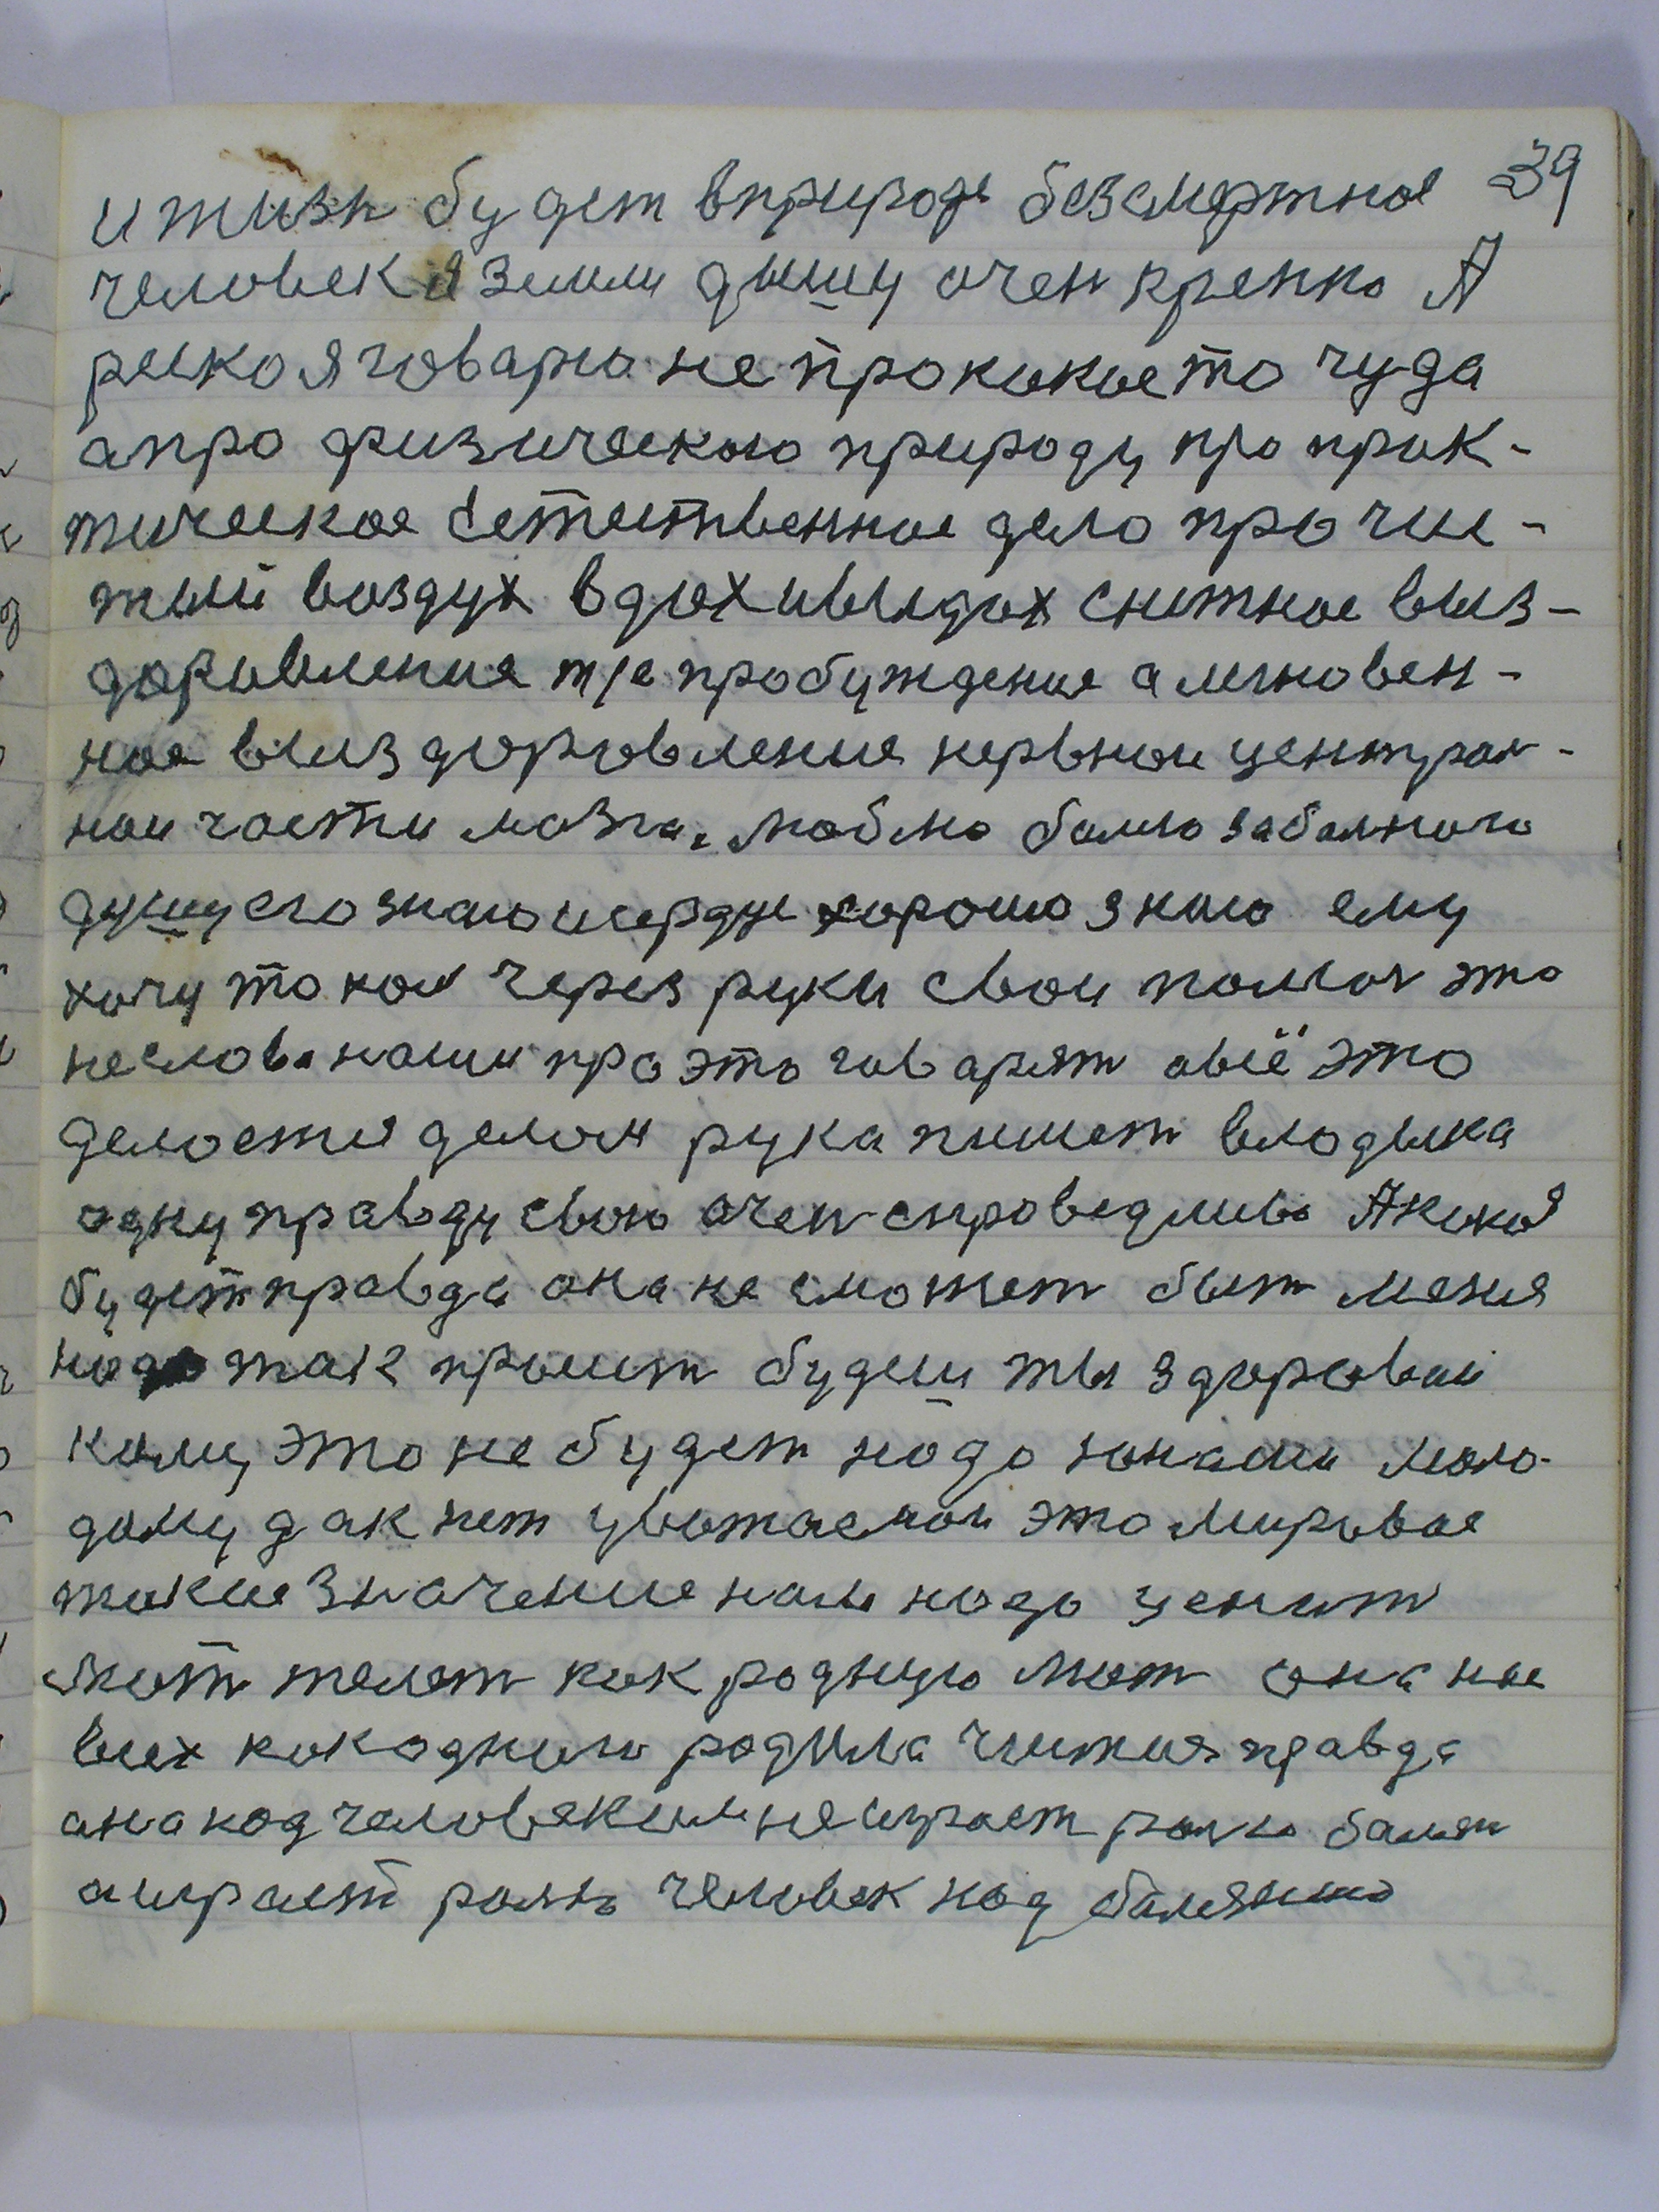 и жизн будет вприроде безсмертное 39
человек я земли дышу очен крепко А
реско я говарю не прококое то чуда
апро физическою природу про прак-
тическое естественное дело про чис-
тый воздух вдох ивыдох снежное выз-
доровление т/е пробуждение а мгновен-
ное выздоровление нервнои централ-
нои части мозга. люблю болю заболного
душу его знаю исердце хорошо знаю ему
хочу током через руки свои помоч это
неслова наши про это говарят овсё это
делоется делом рука пишет владыка
одну правду свою очен справедливо Акокоя
будет правда она не сможет быт меня
надо так просит будеш ты здоровый
кому это не будет надо юнаши моло-
дому дак нет уважаемои это мировое
токие значение нам надо ценит
мат желет как родную мат она нас
всех как одного родила чистая правда
она над человеком не играет ролю болезн
аиграет роль человек над болезнию